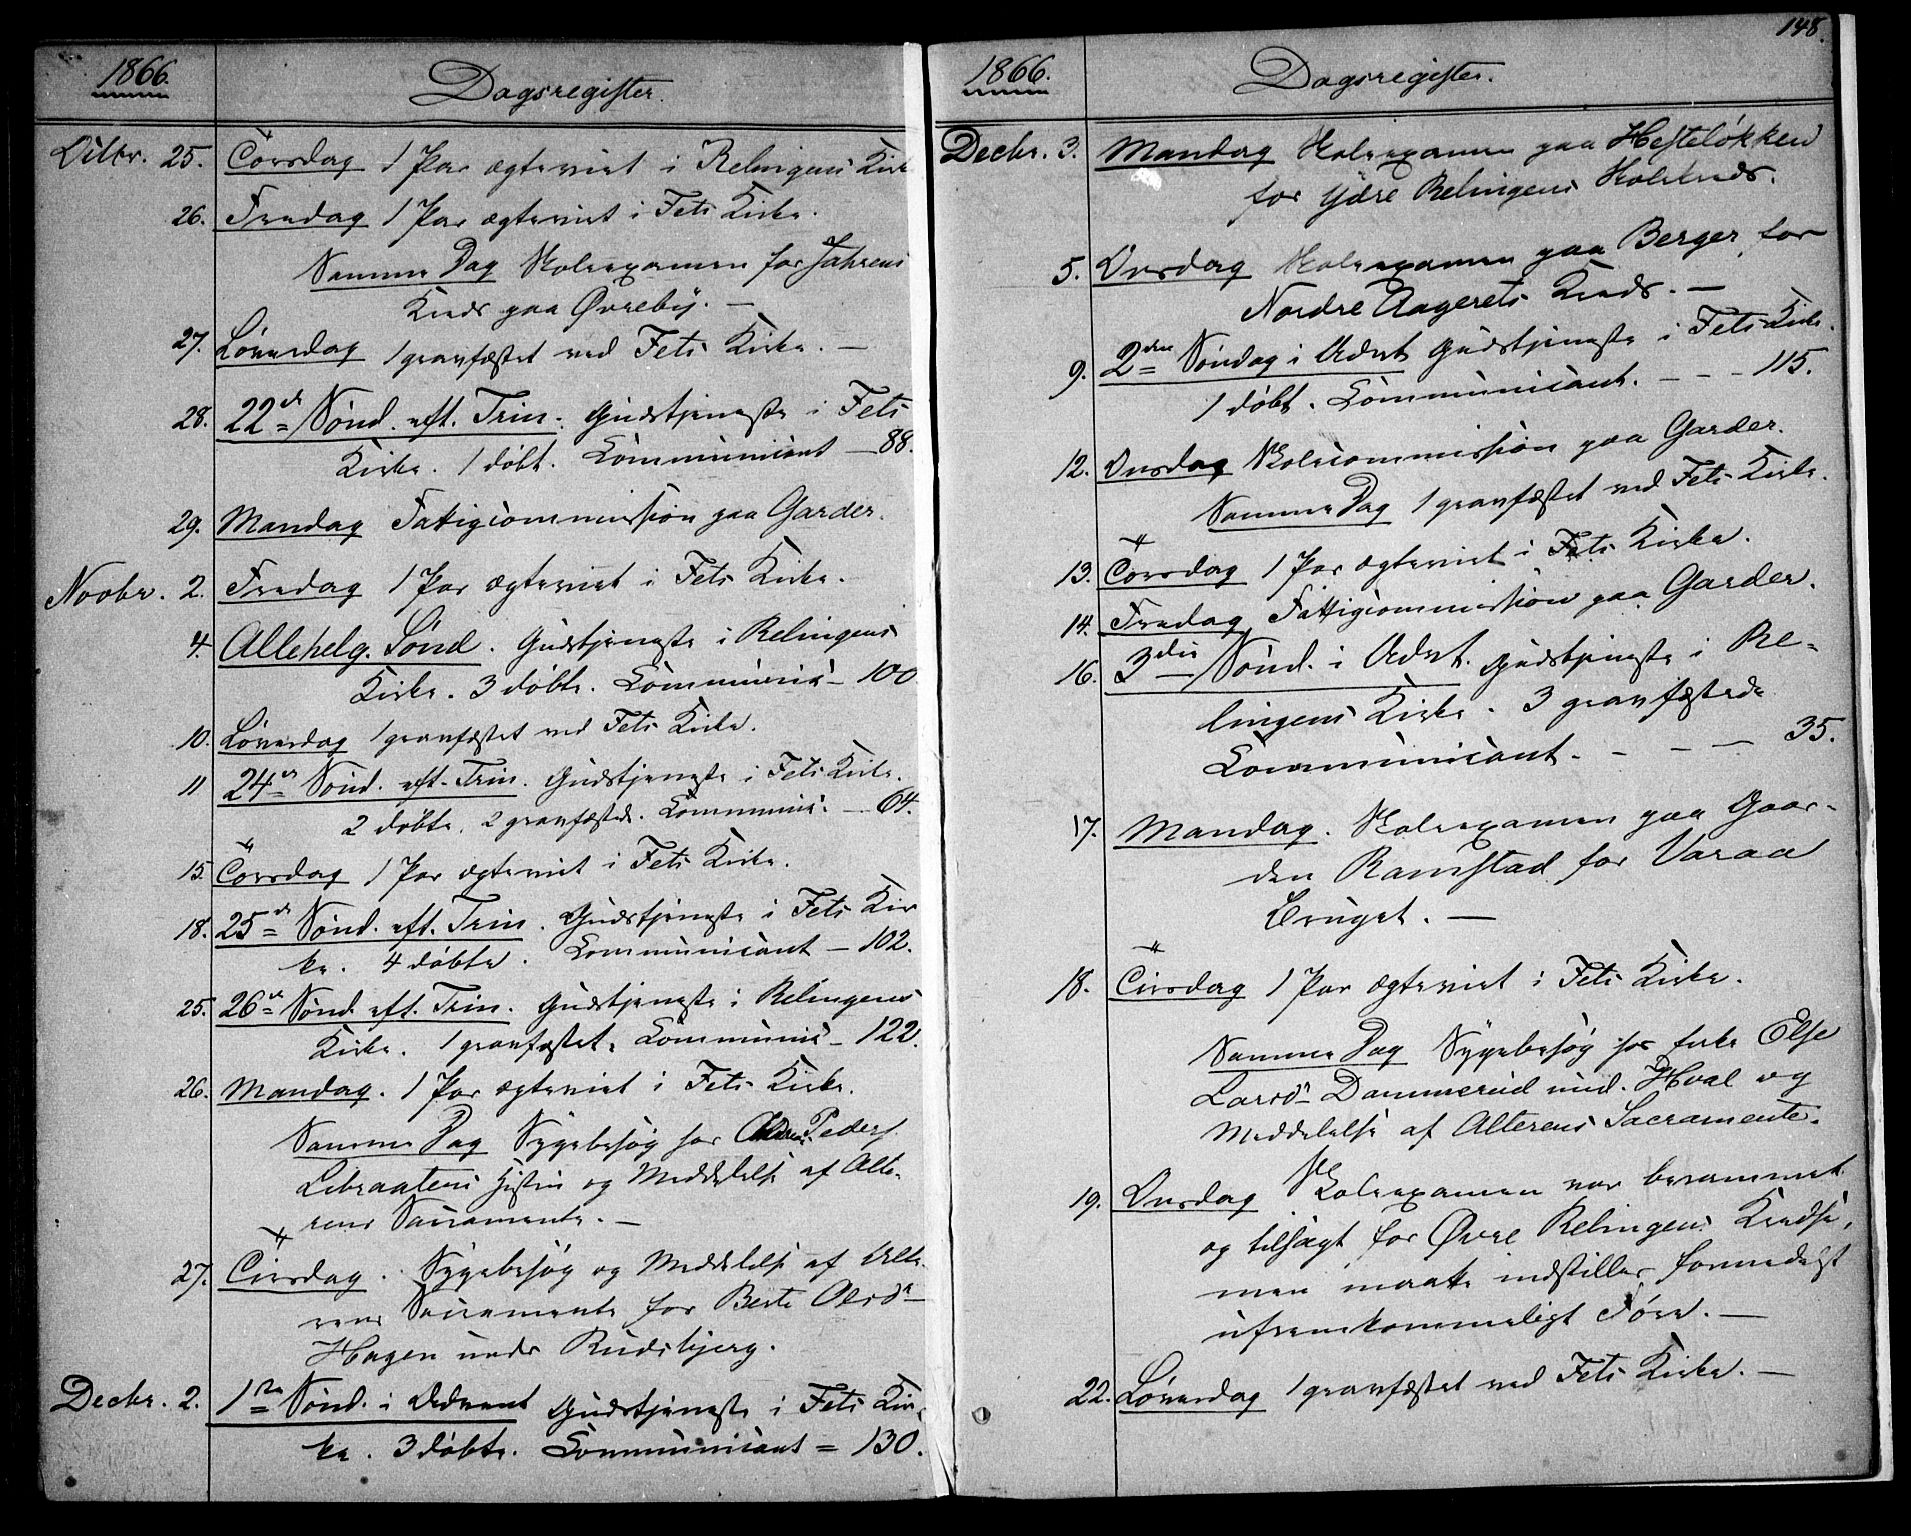 1866.
Dagsregister.
Octbr. 25. Torsdag 1 Par ægteviet i Relingens Kirk
26. Fredag 1 Par ægteviet i Fets Kirke.
Samme Dag Skoleexamen for Jahrens
Kreds paa Øvreby. —
27. Løverdag 1 gravfæstet ved Fets Kirke. —
28. 22de Sønd. eft. Trin. Gudstjeneste i Fets
Kirke. 1 døbt. Communicant — 88.
29. Mandag Fattigcommission paa Garder.
Novbr. 2. Fredag 1 Par ægteviet i Fets Kirke.
4. Allehelg. Sønd. Gudstjeneste i Relingens
Kirke. 3 døbte. Communic — 100.
10. Løverdag 1 gravfæstet ved Fets Kirke.
11 24de Sønd. eft. Trin. Gudstjeneste i Fets Kirke.
2 døbte, 2 gravfæstede. Communic. — 64.
15. Torsdag 1 Par ægteviet i Fets Kirke.
18. 25de Sønd. eft. Trin. Gudstjeneste i Fets Kir
ke. 4 døbte. Communicant — 102.
25. 26de Sønd. eft. Trin. Gudstjeneste i Relingens
Kirke. 1 gravfæstet. Communic — 122.
26. Mandag. 1 Par ægteviet i Fets Kirke.
Samme Dag Sygebesøg hos Peders.
og Meddelelse af Alte-
rens Sacramente. —
27. Tirsdag. Sygebesøg og Meddelelse af Alte-
rens Sacramente for Berte Olsdr
Hagen under Rudsbjerg.
Decbr. 2. 1ste Sønd. i Advent Gudstjeneste i Fets Kir-
ke. 3 døbte. Communicant = 130.
148.
1866.
Dagsregister.
Decbr. 3. Mandag Skoleexamen paa Hesteløkken
for Ydre Relingens Skolekreds.
5. Onsdag Skoleexamen paa Berger for
Nordre Aagerets Kreds. —
9. 2den Søndag i Advt Gudstjeneste i Fets Kirke.
1 døbt. Communicant. — — — 115.
12. Onsdag Skolecommission paa Garder.
Samme Dag 1 gravfæstet ved Fets Kirke.
13. Torsdag 1 Par ægteviet i Fets Kirke.
14. Fredag Fattigcommission paa Garder.
16. 3die Sønd. i Advt. Gudstjeneste i Re-
lingens Kirke. 3 gravfæstede
Communicant. — — — 35.
17. Mandag. Skoleexamen paa Gaar-
den Ramstad for Varaa
Bruget. —
18. Tirsdag 1 Par ægteviet i Fets Kirke.
Samme Dag Sygebesøg hos Enke Else
Larsdr Dammerud und. Hval og
Meddelelse af Alterens Sacramente.
19. Onsdag Skoleexamen var berammet
og tilsagt for Øvre Relingens Kredse,
men maatte indstilles formedelst
ufremkommeligt Føre. —
22. Løverdag 1 gravfæstet ved Fets Kirke. —